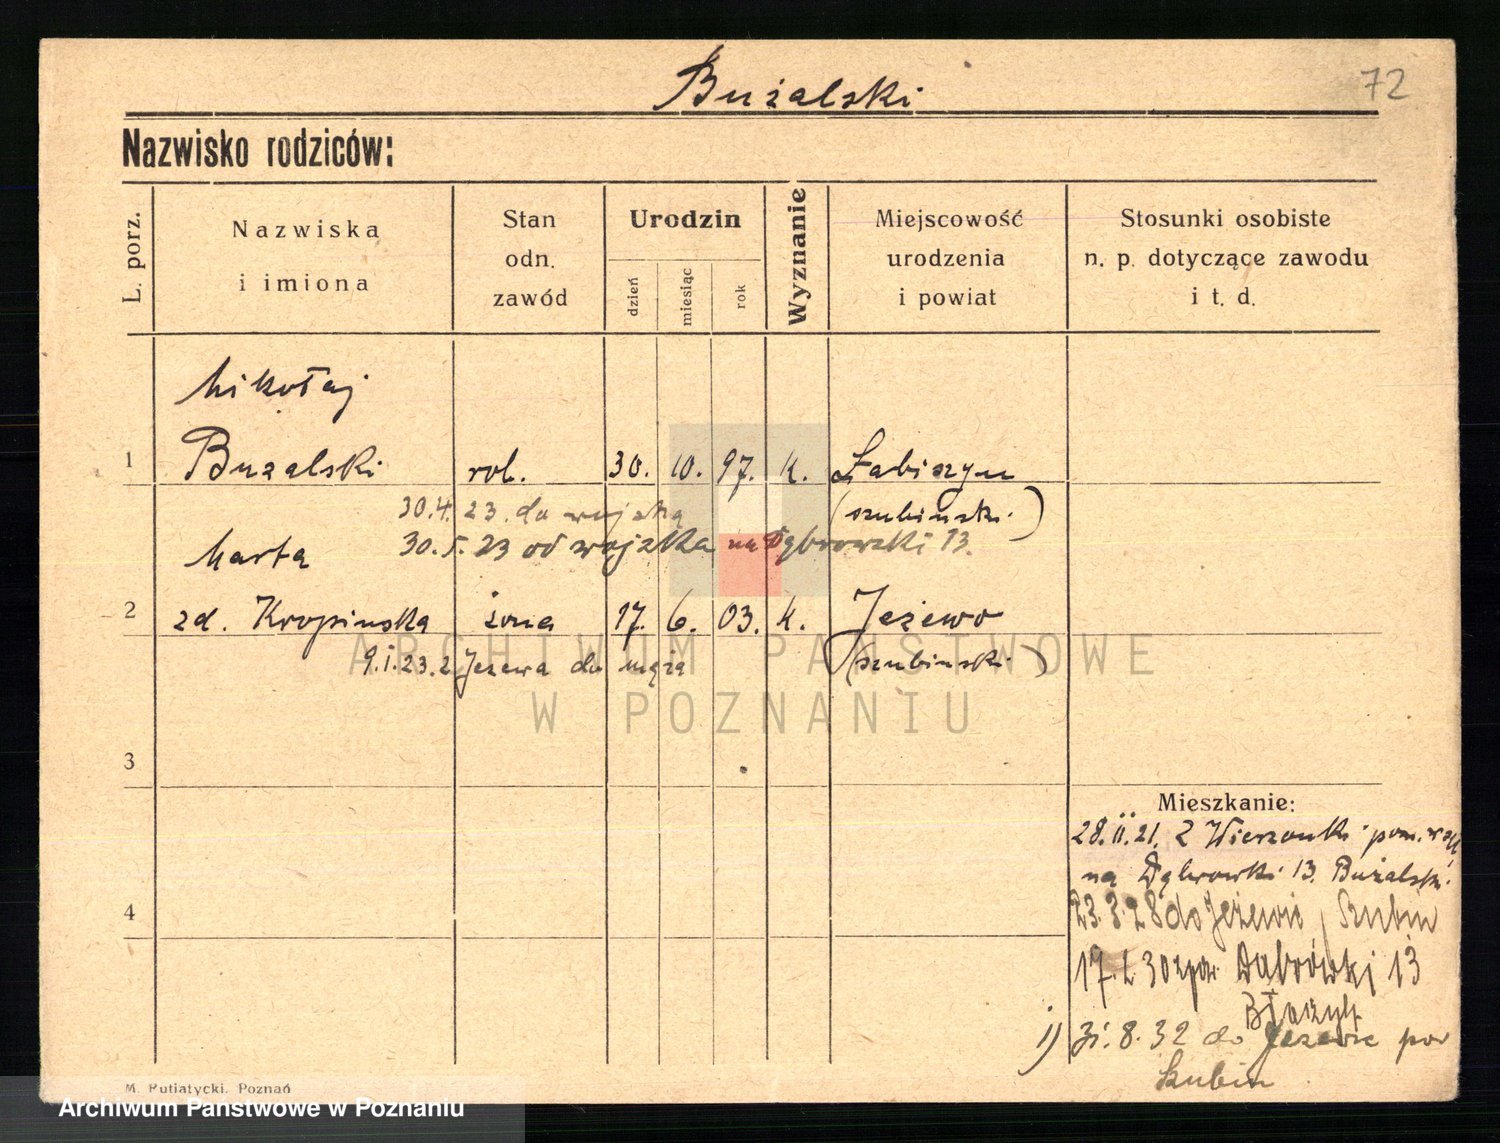 Bużalski
72
Nazwisko rodziców:
L. porz.
Nazwiska
i imiona
Stan
odn.
zawód
Urodzin
dzień
miesiąc
rok
Wyznanie
Miejscowość
urodzenia
i powiat
Stosunki osobiste
n. p. dotyczące zawodu
i t. d.
Mikołaj
1 Buzalski rob. 30. 10. 97. k. Łabiszyn
30.4.23. do wojska (szubiński)
30.5.23 od wojska na Dąbrowski 13.
Marta
2 zd. Kropinska żona 17. 6. 03. k. Jeżewo
9.I.23. z Jezewa do męża (szubinski)
ARCHIWUM PAŃSTWOWE
W POZNANIU
3
Mieszkanie:
28.II.21. Z Wierzonki pow.
na Dąbrowki 13. Bużalski
4
23.3.28 do Jeżewo Szubin
17. 30 Dąbrówki 13
Błażyk
1) 31.8.32 do Jezewa pow
Szubin
M. Putiatycki, Poznań
Archiwum Państwowe w Poznaniu